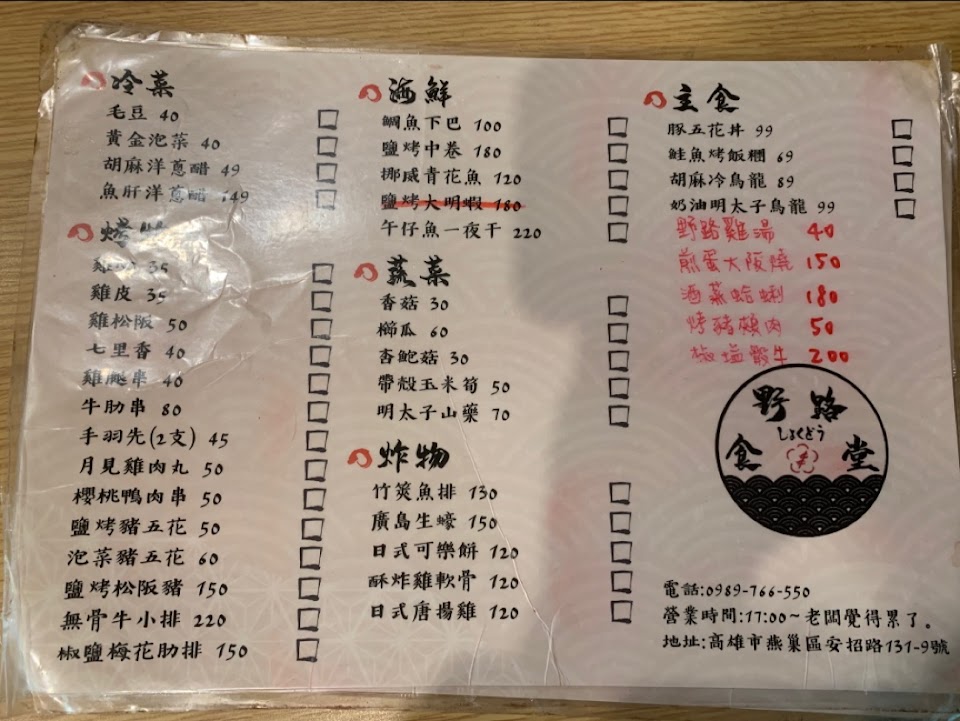 冷菜
毛豆 40
黃金泡菜 40
胡麻洋蔥醋 49
魚肝洋蔥醋 149
烤物
35
雞皮 35
雞松阪 50
七里香 40
雞腿串 40
牛肋串 80
手羽先(2支) 45
月見雞肉丸 50
櫻桃鴨肉串 50
鹽烤豬五花 50
泡菜豬五花 60
鹽烤松阪豬 150
無骨牛小排 220
椒鹽梅花肋排 150
海鮮
鯛魚下巴 100
鹽烤中卷 180
挪威青花魚 120
鹽烤大明蝦 180
午仔魚一夜干 220
蔬菜
香菇 30
櫛瓜 60
杏鮑菇 30
帶殼玉米筍 50
明太子山藥 70
炸物
竹筴魚排 130
廣島生蠔 150
日式可樂餅 120
酥炸雞軟骨 120
日式唐揚雞 120
主食
豚五花丼 99
鮭魚烤飯糰 69
胡麻冷烏龍 89
奶油明太子烏龍 99
野路雞湯 40
煎蛋大阪燒 150
酒蒸蛤蜊 180
烤豬頰肉 50
椒塩骰牛 200
野路
しょくどう
食堂
電話:0989-766-550
營業時間:17:00~老闆覺得累了。
地址:高雄市燕巢區安招路131-9號